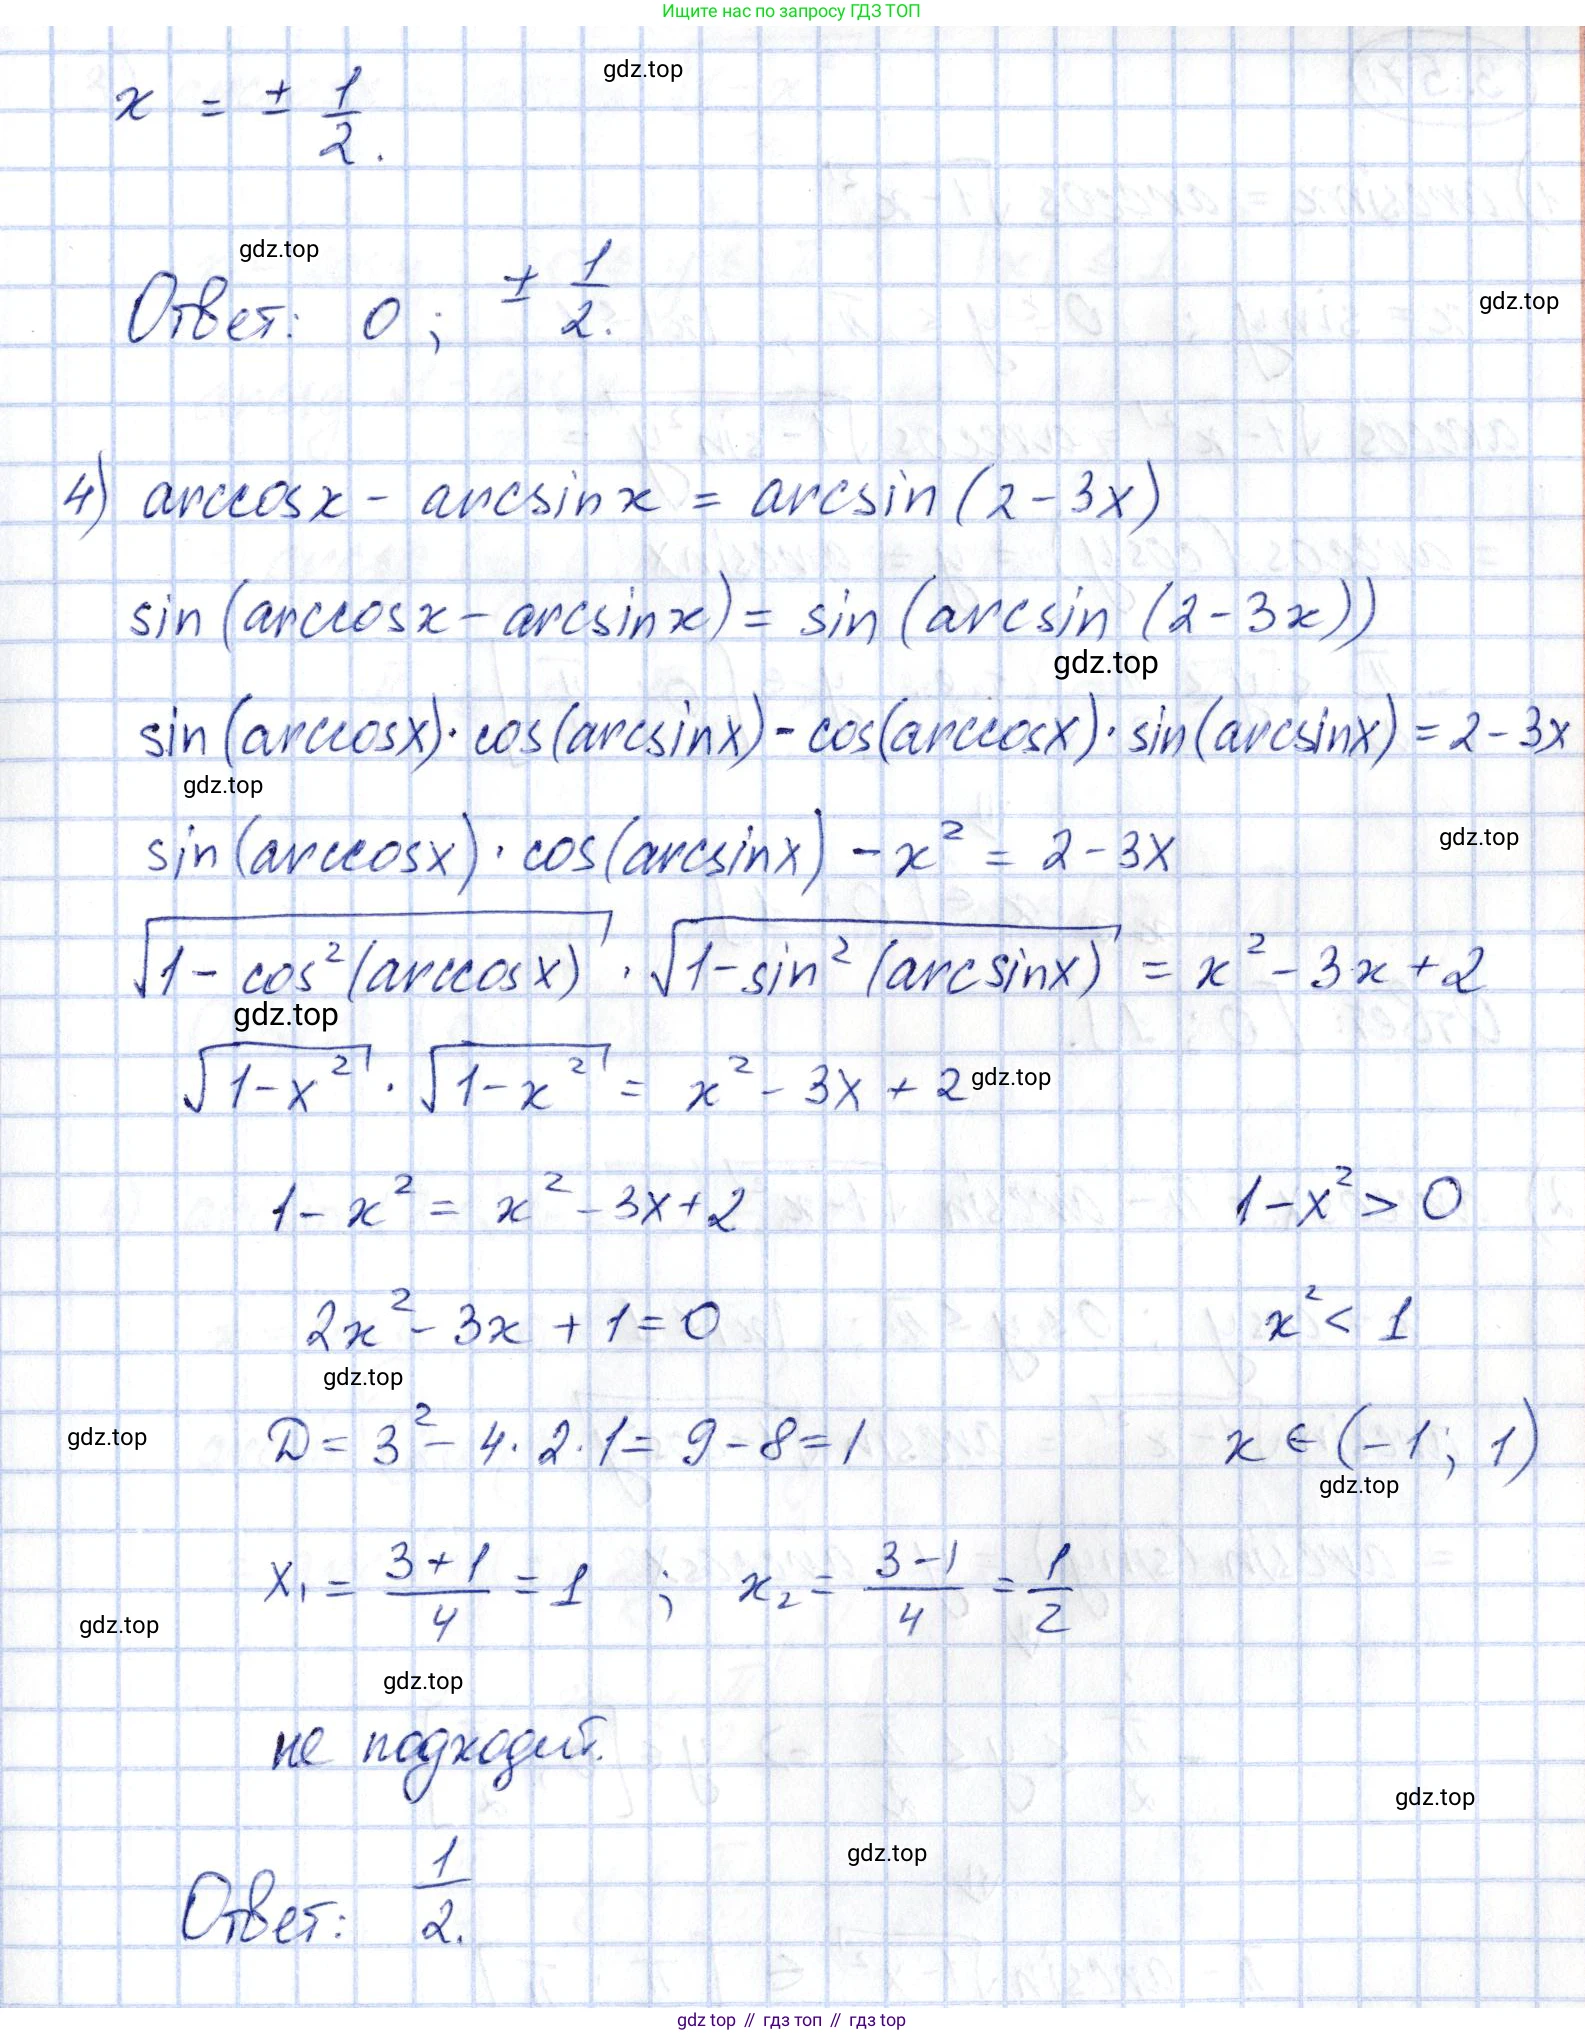 Ищите нас по запросу ГДЗ ТОП
gdz.top
x = ± 1/2.
gdz.top
Ответ: 0; ± 1/2.
gdz.top
gdz.top
4) arccosx - arcsinx = arcsin(2-3x)
sin(arccosx - arcsinx) = sin(arcsin(2-3x))
gdz.top
sin(arccosx)·cos(arcsinx) - cos(arccosx)·sin(arcsinx) = 2-3x
gdz.top
gdz.top
sin(arccosx)·cos(arcsinx) - x² = 2-3x
√(1-cos²(arccosx)) · √(1-sin²(arcsinx)) = x²-3x+2
gdz.top
√(1-x²) · √(1-x²) = x²-3x+2
gdz.top
1-x² = x²-3x+2 1-x² > 0
2x²-3x+1=0 x² < 1
gdz.top
gdz.top
D = 3²-4·2·1 = 9-8 = 1 x ∈ (-1; 1)
gdz.top
x₁ = (3+1)/4 = 1 ; x₂ = (3-1)/4 = 1/2
gdz.top
gdz.top
не подходит.
gdz.top
gdz.top
Ответ: 1/2.
gdz top // гдз топ // гдз top